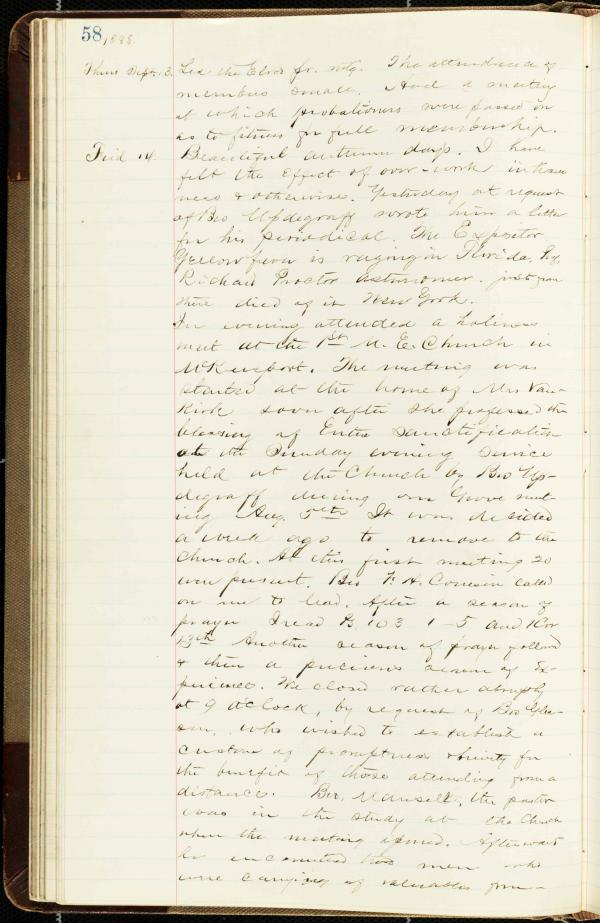 58 1888.
Thurs Sept. 13. Led the Elrod fr. mtg. The attendance of
members small. Had a meeting
at which probationers were passed on
as to fitness for full membership.
Frid 14. Beautiful autumn days. I have
felt the effect of over-work in
& otherwise. Yesterday at request
of Bro Updegraff wrote him a letter
for his periodical. The Expositor
Yellow fever is raging in Florida, &
Richard Proctor astronomer. just from
there died of it New York.
In evening attended a holiness
meet at the 1st M. E. Church in
McKeesport. The meeting was
started at the home of Mrs Van-
kirk soon after she professed the
blessing of Entire Sanctification
at the Sunday evening service
held at the Church by Bro Up-
degraff during our Grove meet-
ing Aug. 5th It was decided
a week ago to remove to the
church. At this first meeting 20
were present. Bro called
on me to lead. After a season of
prayer I read Ps 103 1-5 and 1 Cor
13th Another season of prayer followed
& then a precious season of Ex-
perience. We closed rather abruptly
at 9 o'clock, by request of Bro
who wished to establish a
custom of promptness & brevity for
the benefit of those attending from a
distance. Bro. Mansell, the pastor
was in the study at the Church
when the meeting opened. Afterward
he encountered two men who
were carrying off valuables from